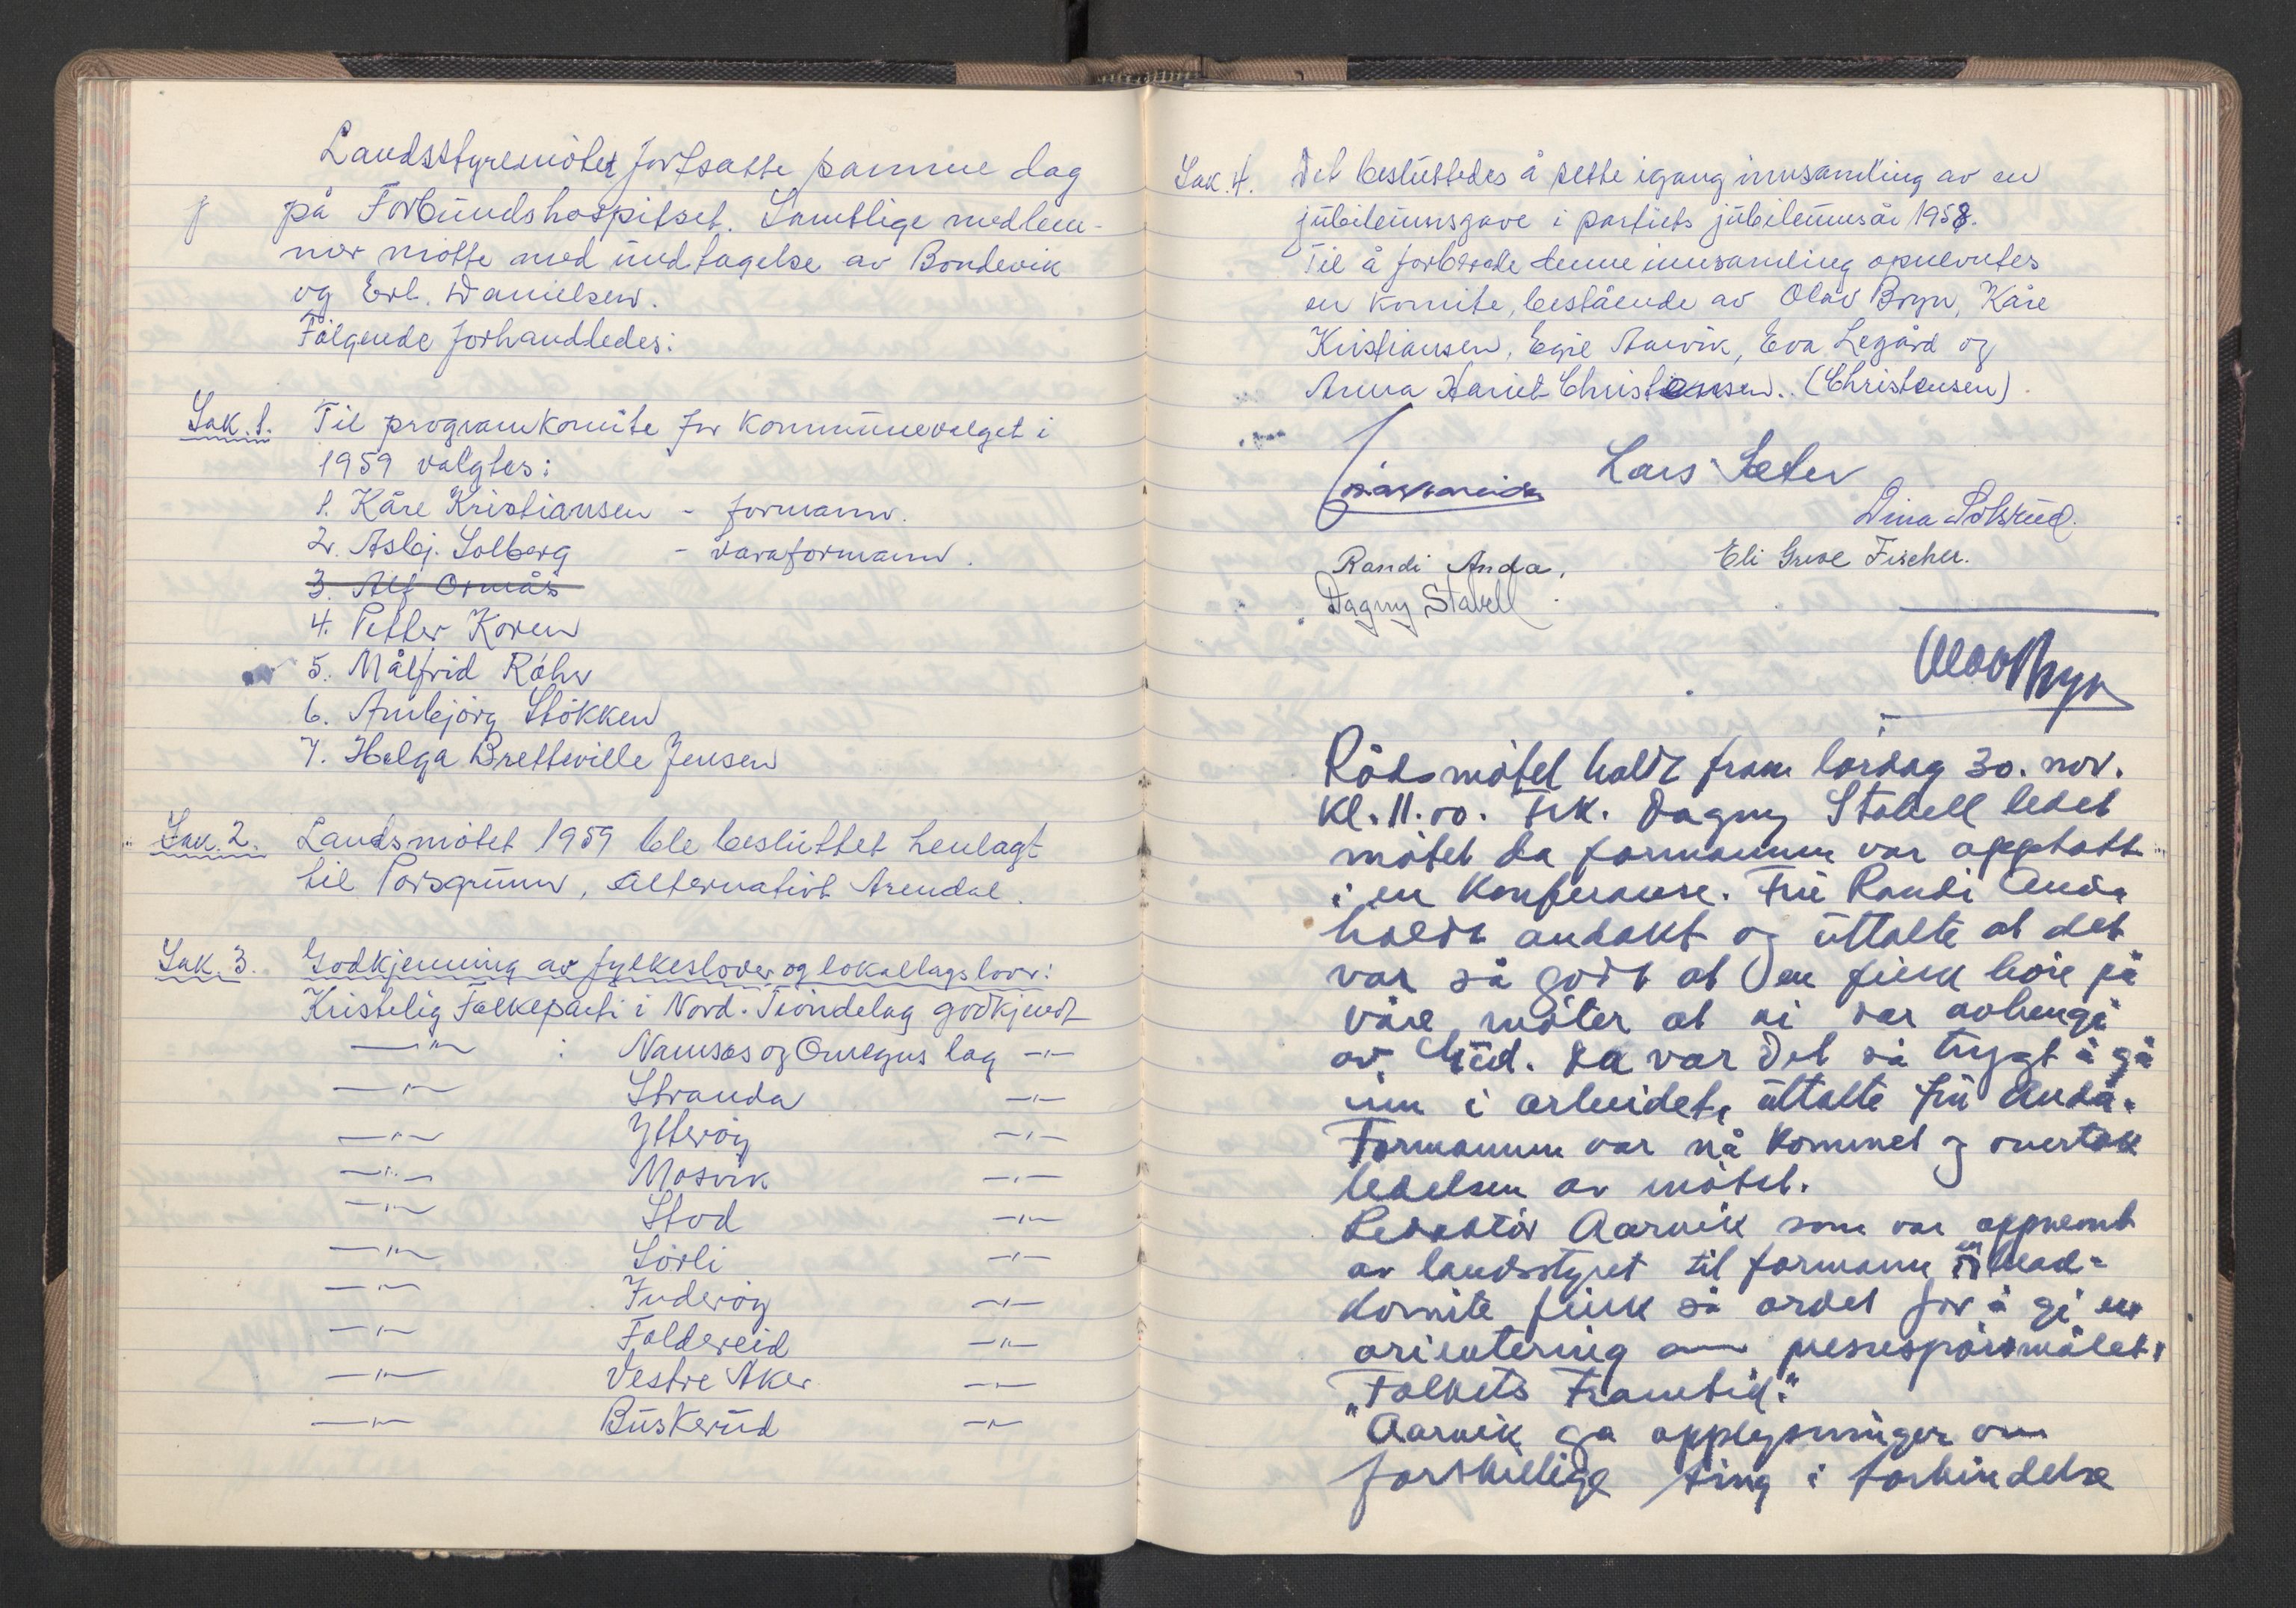 Landsstyremötet fortsatte samme dag
på Forbundshospitset. Samtlige medlem-
mer møtte med undtagelse av Bondevik
og Erl. Danielsen.
Følgende forhandledes:
Sak. 1. Til programkomite for kommunevalget i
1959 valgtes:
1. Kåre Kristiansen - formann.
2. Asbj. Solberg - varaformann.
3. Alf Ormås
4. Petter Koren
5. Målfrid Röhr
6. Arnbjörg Stökken
7. Helga Bretteville Jensen
Sak. 2. Landsmötet 1959 ble besluttet henlagt
til Porsgrunn, alternativt Arendal.
Sak. 3. Godkjenning av fylkeslover og lokallagslover:
Kristelig Folkeparti i Nord-Tröndelag godkjendt
—"— : Namsos og Omegns lag —"—
—"— Stranda —"—
—"— Ytteröy —"—
—"— Mosvik —"—
—"— Stod —"—
—"— Sörli —"—
—"— Inderöy —"—
—"— Foldereid —"—
—"— Vestre Aker —"—
—"— Buskerud —"—
Sak. 4. Det besluttedes å sette igang innsamling av en
jubileumsgave i partiets jubileumsår 1958.
Til å forberede denne innsamling opnevntes
en komite, bestående av Olav Bryn, Kåre
Kristiansen, Egil Aarvik, Eva Legård og
Anna Hariet Christensen.. (Christensen).
Lars Sæter
Randi Anda.
Eli Greve Fischer.
Dagny Stabell
Olav Bryn
Rådsmötet holdt fram lördag 30. nov.
kl. 11.00. Frk. Dagny Stabell ledet
mötet da formannen var opptatt
i en konferanse. Fru Randi Anda
holdt andakt og uttalte at det
var så godt at en fikk höre på
våre möter at vi var avhengi
av Gud. Da var det så trygt å gå
inn i arbeidet, uttalte fru Anda.
Formannen var nå kommet og overtok
ledelsen av mötet.
Redaktör Aarvik som var oppnemt
av landsstyret til formann i en blad-
komite fikk så ordet for å gi en
orientering om pressespörsmålet.
"Folkets Framtid."
Aarvik ga opplysninger om
forskellige ting i forbindelse